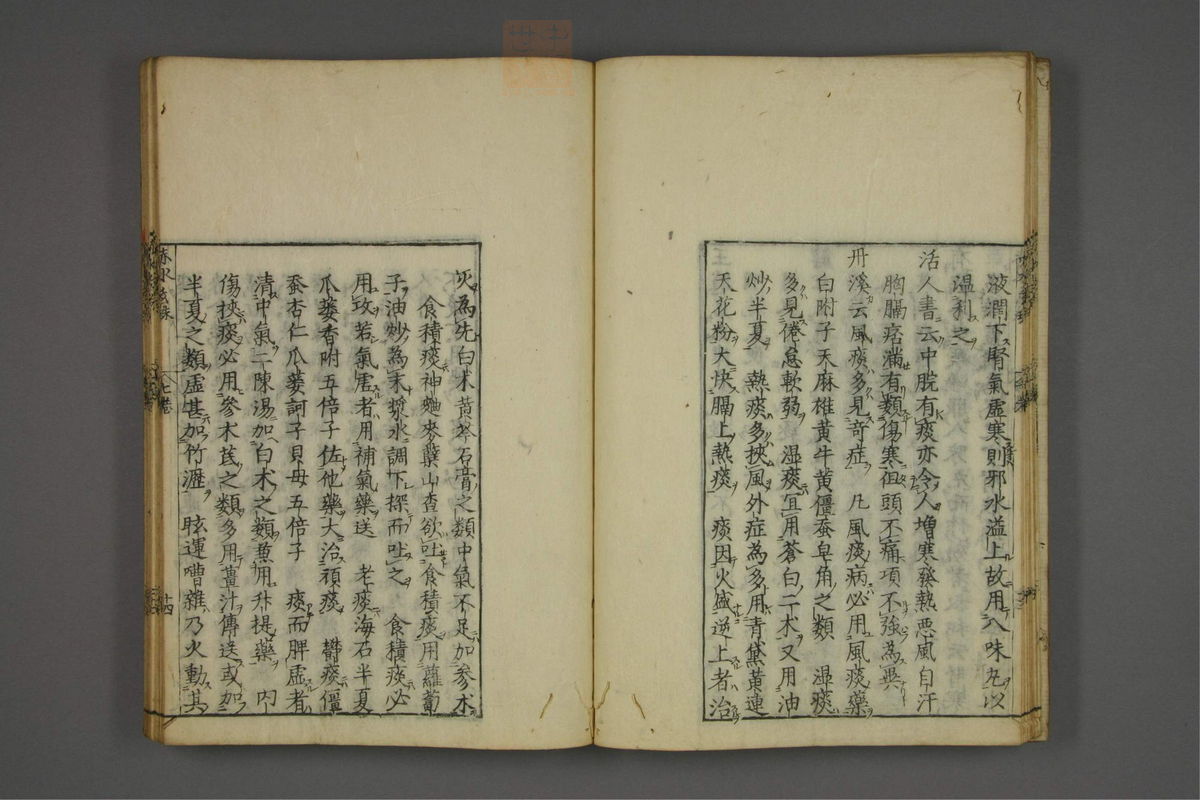 液潤下腎氣虛寒則邪水溢上故用八味丸以
溫利之
活人書云中脘有痰亦令人增寒發熱惡風自汗
胸膈痞滿有類傷寒但頭不痛項不強為異
丹溪云風痰多見奇症 凡風痰病必用風痰藥
白附子天麻雄黃牛黃僵蚕皁角之類 湿痰
多見倦怠軟弱 湿痰宜用蒼白二术又用油
炒半夏 熱痰多挾風外症為多用青黛黃連
天花粉大快膈上熱痰 痰因火盛逆上者治
火為先白术黃芩石膏之類中氣不足加參术
食積痰神麯麥糵山查欲吐食積痰用蘿蔔
子油炒為末漿水調下探而吐之 食積痰必
用攻若氣虛者用補氣藥送 老痰海石半夏
瓜蔞香附五倍子佐他藥大治頑痰 欝痰僵
蚕杏仁瓜蔞訶子貝母五倍子 痰而脾虛者
清中氣二陳湯加白术之類兼用升提藥 內
傷挾痰必用參术芪之類多用薑汁傳送或加
半夏之類虛甚加竹瀝 眩運嘈雜乃火動其
赤水玄珠
七卷
十四